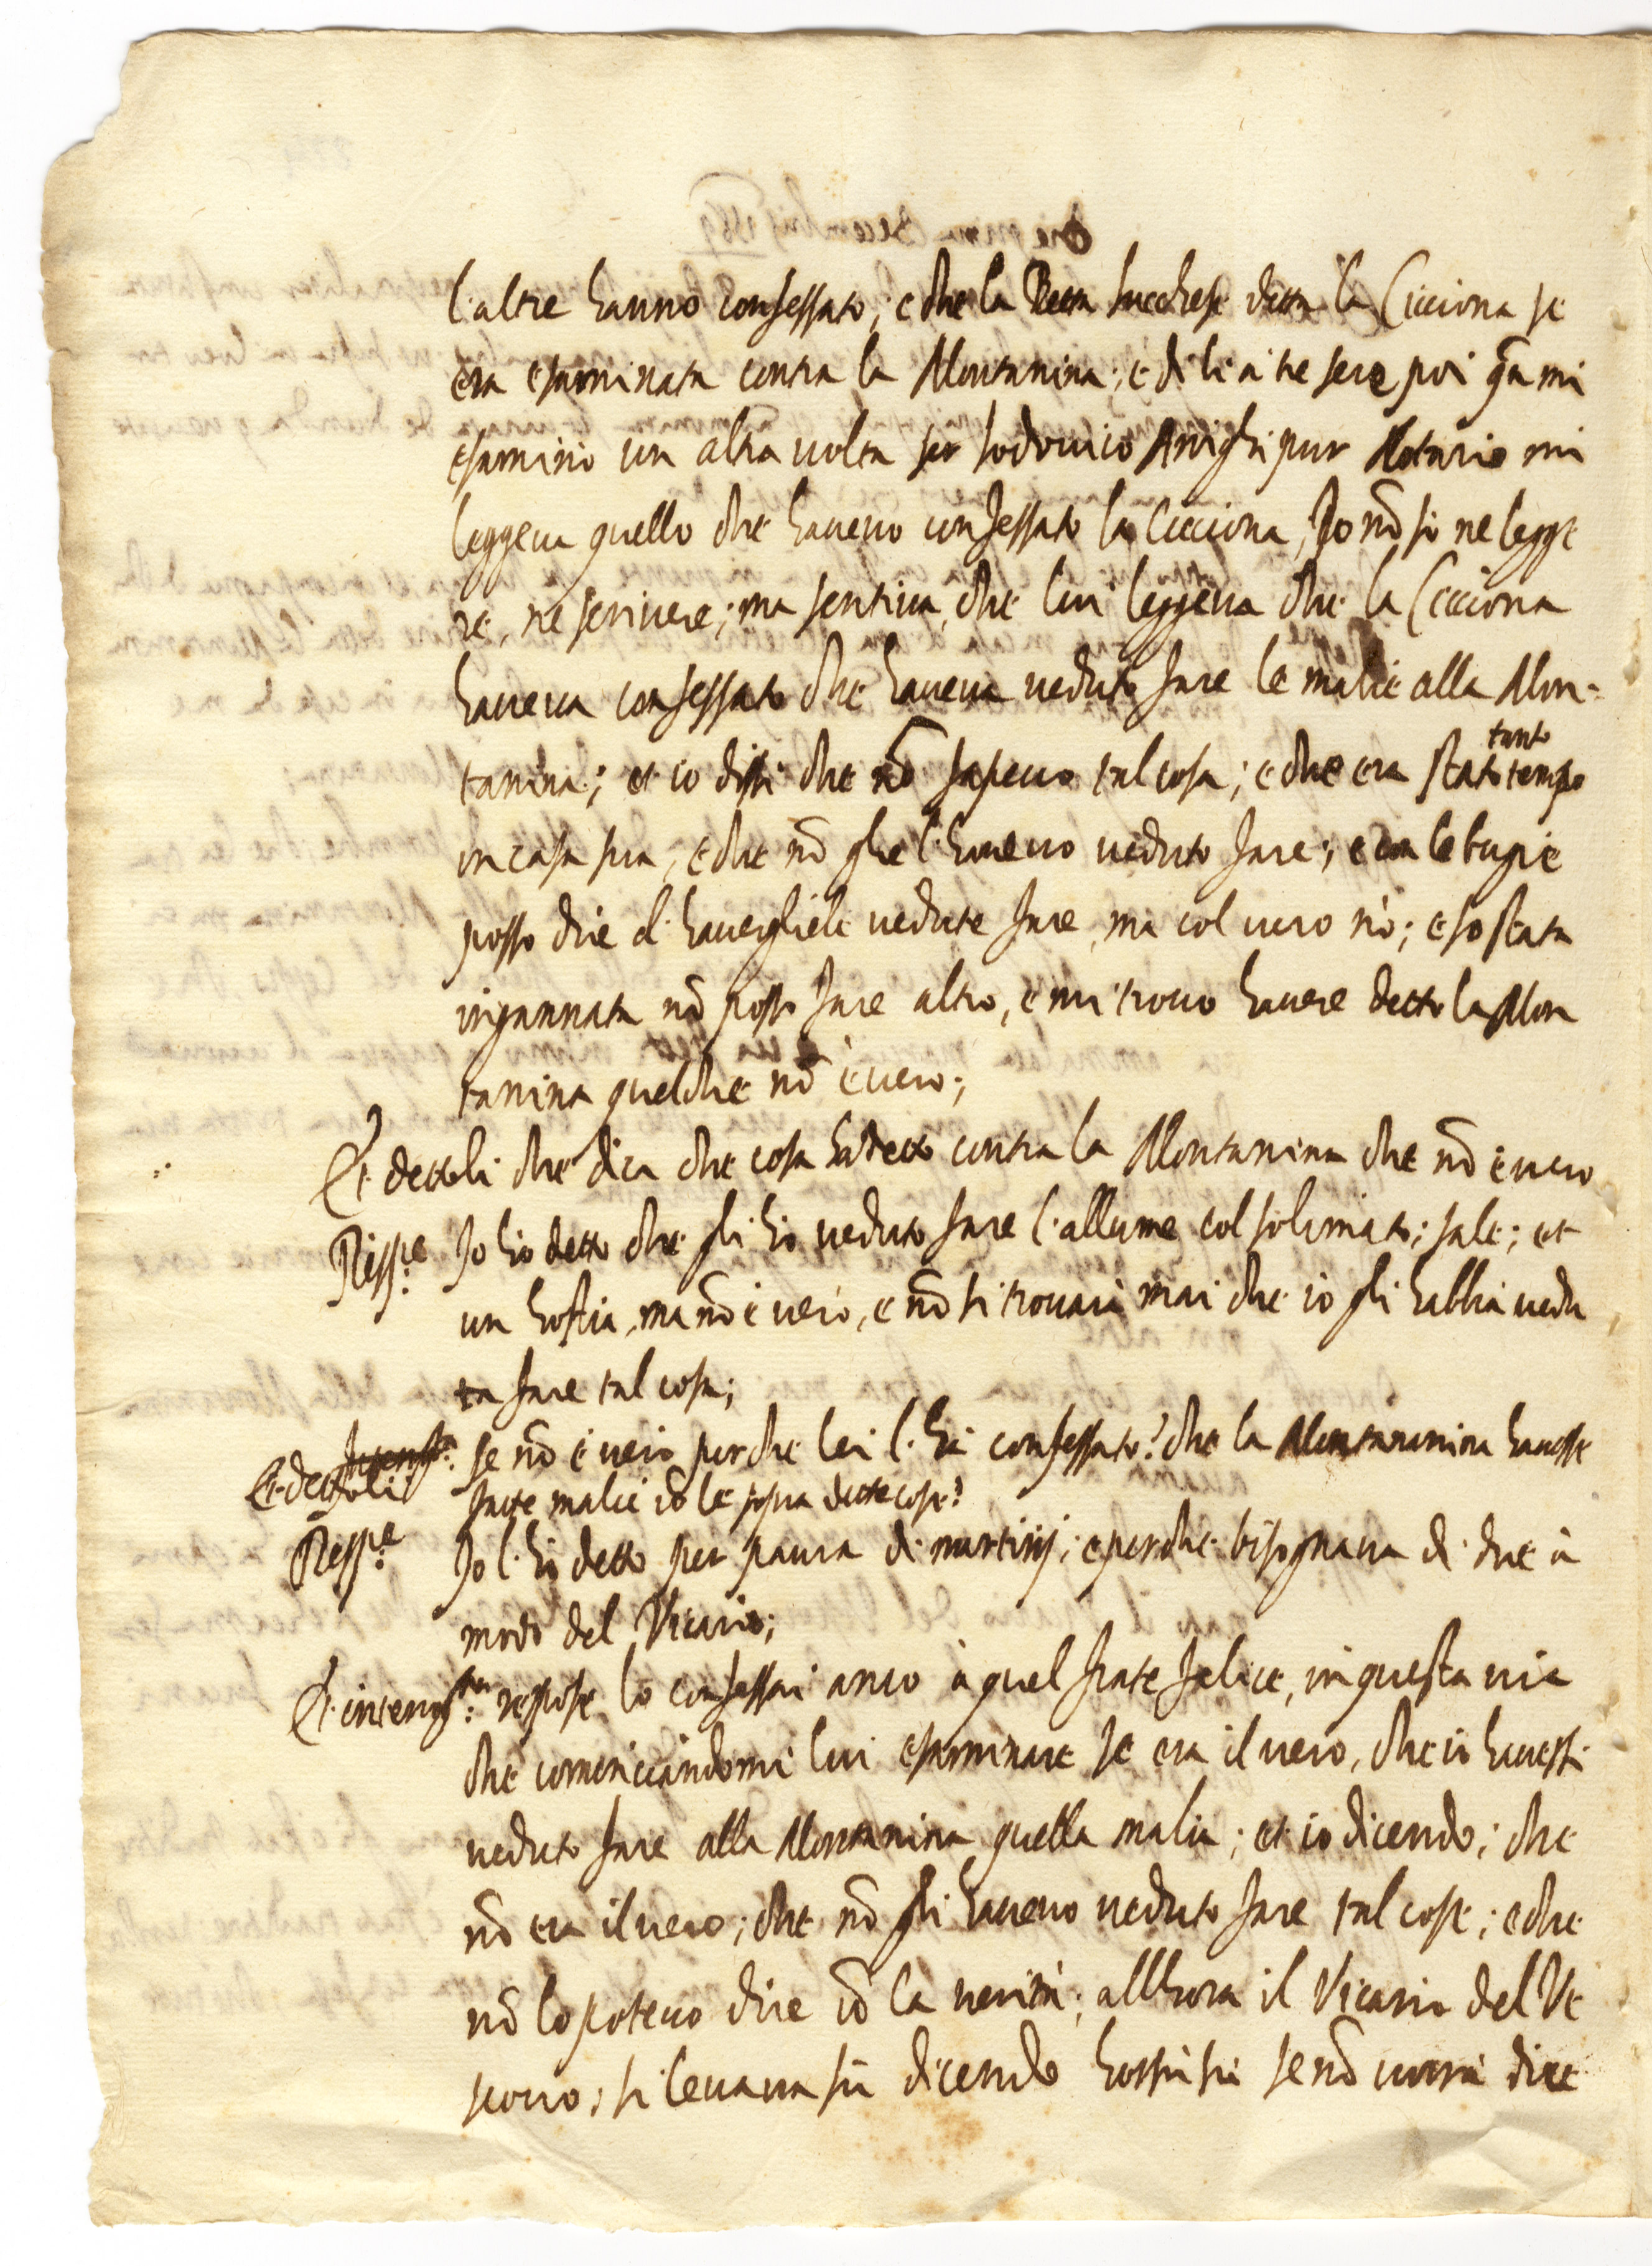 l'altre hanno confessato; e che la Betta lucchese detta la Cicciona se
era esaminata contra la Montanina; e di li a tre sere poi qña mi
esaminò un altra volta ser lodovico Arrighi pur Notario mi
leggeva quello che haveva confessato la Cicciona, Io nõ so ne legge
re, ne scrivere; ma sentiva, che lui leggeva che la Cicciona
haveva confessato che haveva veduto fare le malie alla Mon-
tanina; et io dissi che nõ sapevo tal cosa; e che era stato tanto tempo
in casa sua, e che nõ ghe l'havevo veduto fare; e con le bugie
posso dire d'haverghiele vedute fare, ma col vero nò; e so stata
ingannata nõ posso fare altro, e mi trovo havere detto la Mon
tanina quelche nõ è vero;
Et dettoli che dica che cosa ha detto contra la Montanina che nõ è vero
Risp.e Io ho detto che gli ho veduto fare l'allume col solimato; sale; et
un hostia, ma nõ è vero, e nõ si trovarà mai che io gli habbia vedu
ta fare tal cosa;
Et dettoli se nõ è vero perche lei l'ha confessato? che la Montanina havesse
fatte malie cõ le sopra dette cose?
Resp.e Io l'ho detto per paura di martirij; e perche bisognava di dire à
modo del Vicario;
Et interrog.ta respose lo confessai anco à quel frate felice, in questa via
che cominciandomi lui esaminare se era il vero, che io havessi
veduto fare alla Montanina quella malia; et io dicendo; che
nõ era il vero; che nõ gli havevo veduto fare tal cose; e che
nõ lo potevo dire cõ la verità; allhora il Vicario del Ve
scovo; si levava sù dicendo horsù sù se nõ vorrà dire